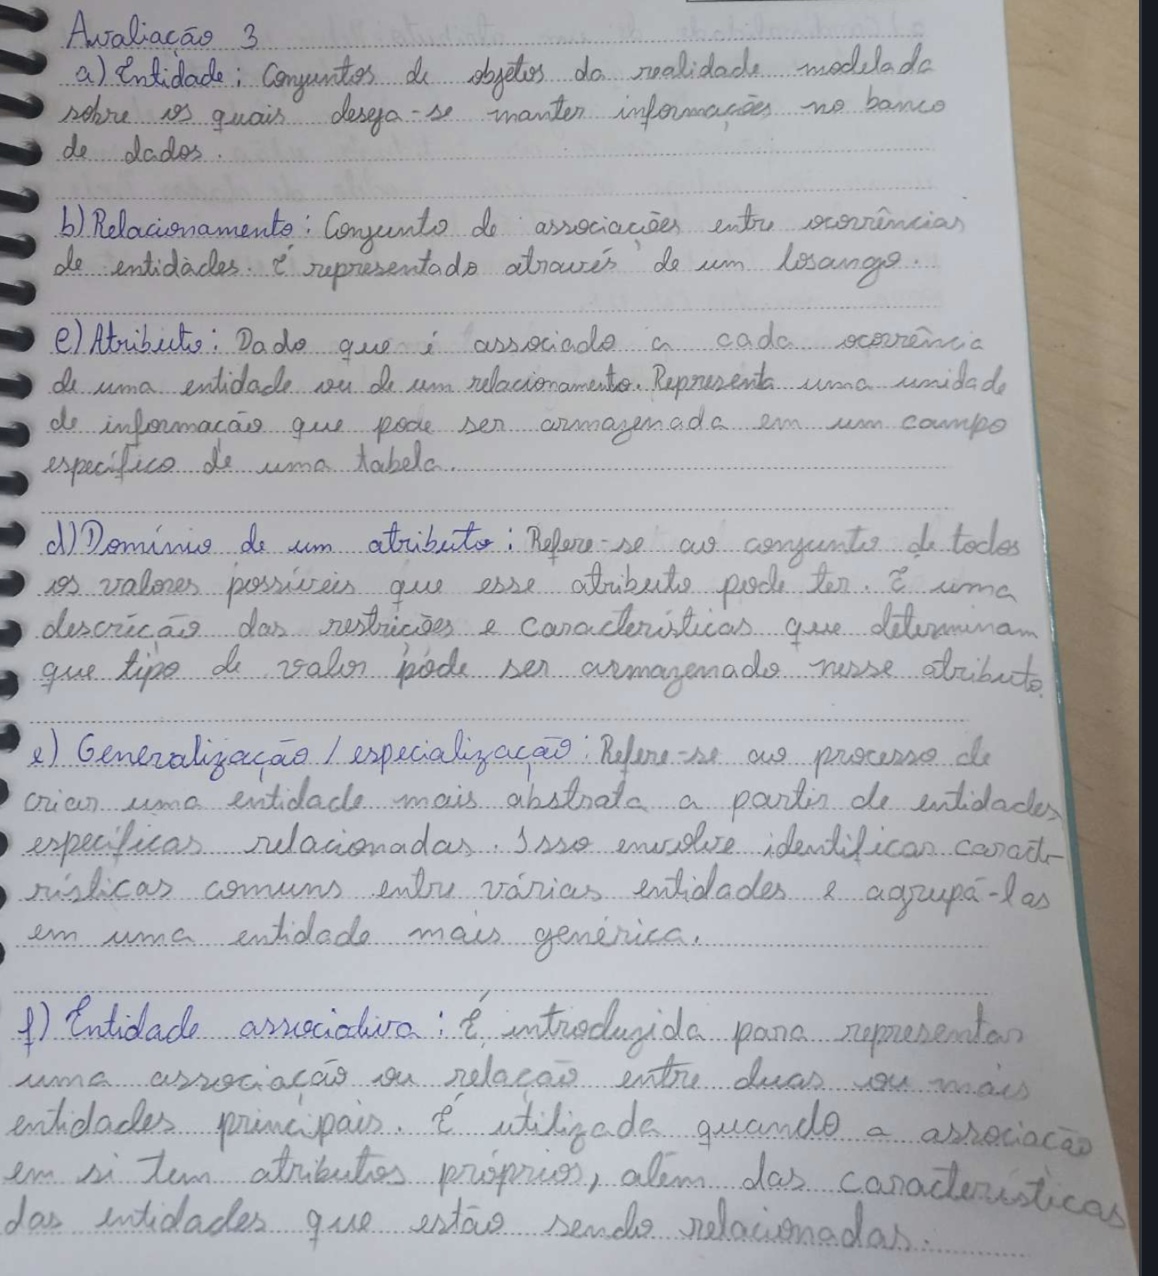 Avaliação 3
a) Entidade: Conjuntos de objetos da realidade modelada
sobre os quais deseja-se manter informações no banco
de dados.
b) Relacionamento: Conjunto de associações entre ocorrências
de entidades. É representado através de um losango.
c) Atributo: Dado que é associado a cada ocorrência
de uma entidade ou de um relacionamento. Representa uma unidade
de informação que pode ser armazenada em um campo
específico de uma tabela.
d) Domínio de um atributo: Refere-se ao conjunto de todos
os valores possíveis que esse atributo pode ter. É uma
descrição das restrições e características que determinam
que tipo de valor pode ser armazenado nesse atributo.
e) Generalização / especialização: Refere-se ao processo de
criar uma entidade mais abstrata a partir de entidades
específicas relacionadas. Isso envolve identificar caracte-
rísticas comuns entre várias entidades e agrupá-las
em uma entidade mais genérica.
f) Entidade associativa: É introduzida para representar
uma associação ou relação entre duas ou mais
entidades principais. É utilizada quando a associação
em si tem atributos próprios, além das características
das entidades que estão sendo relacionadas.